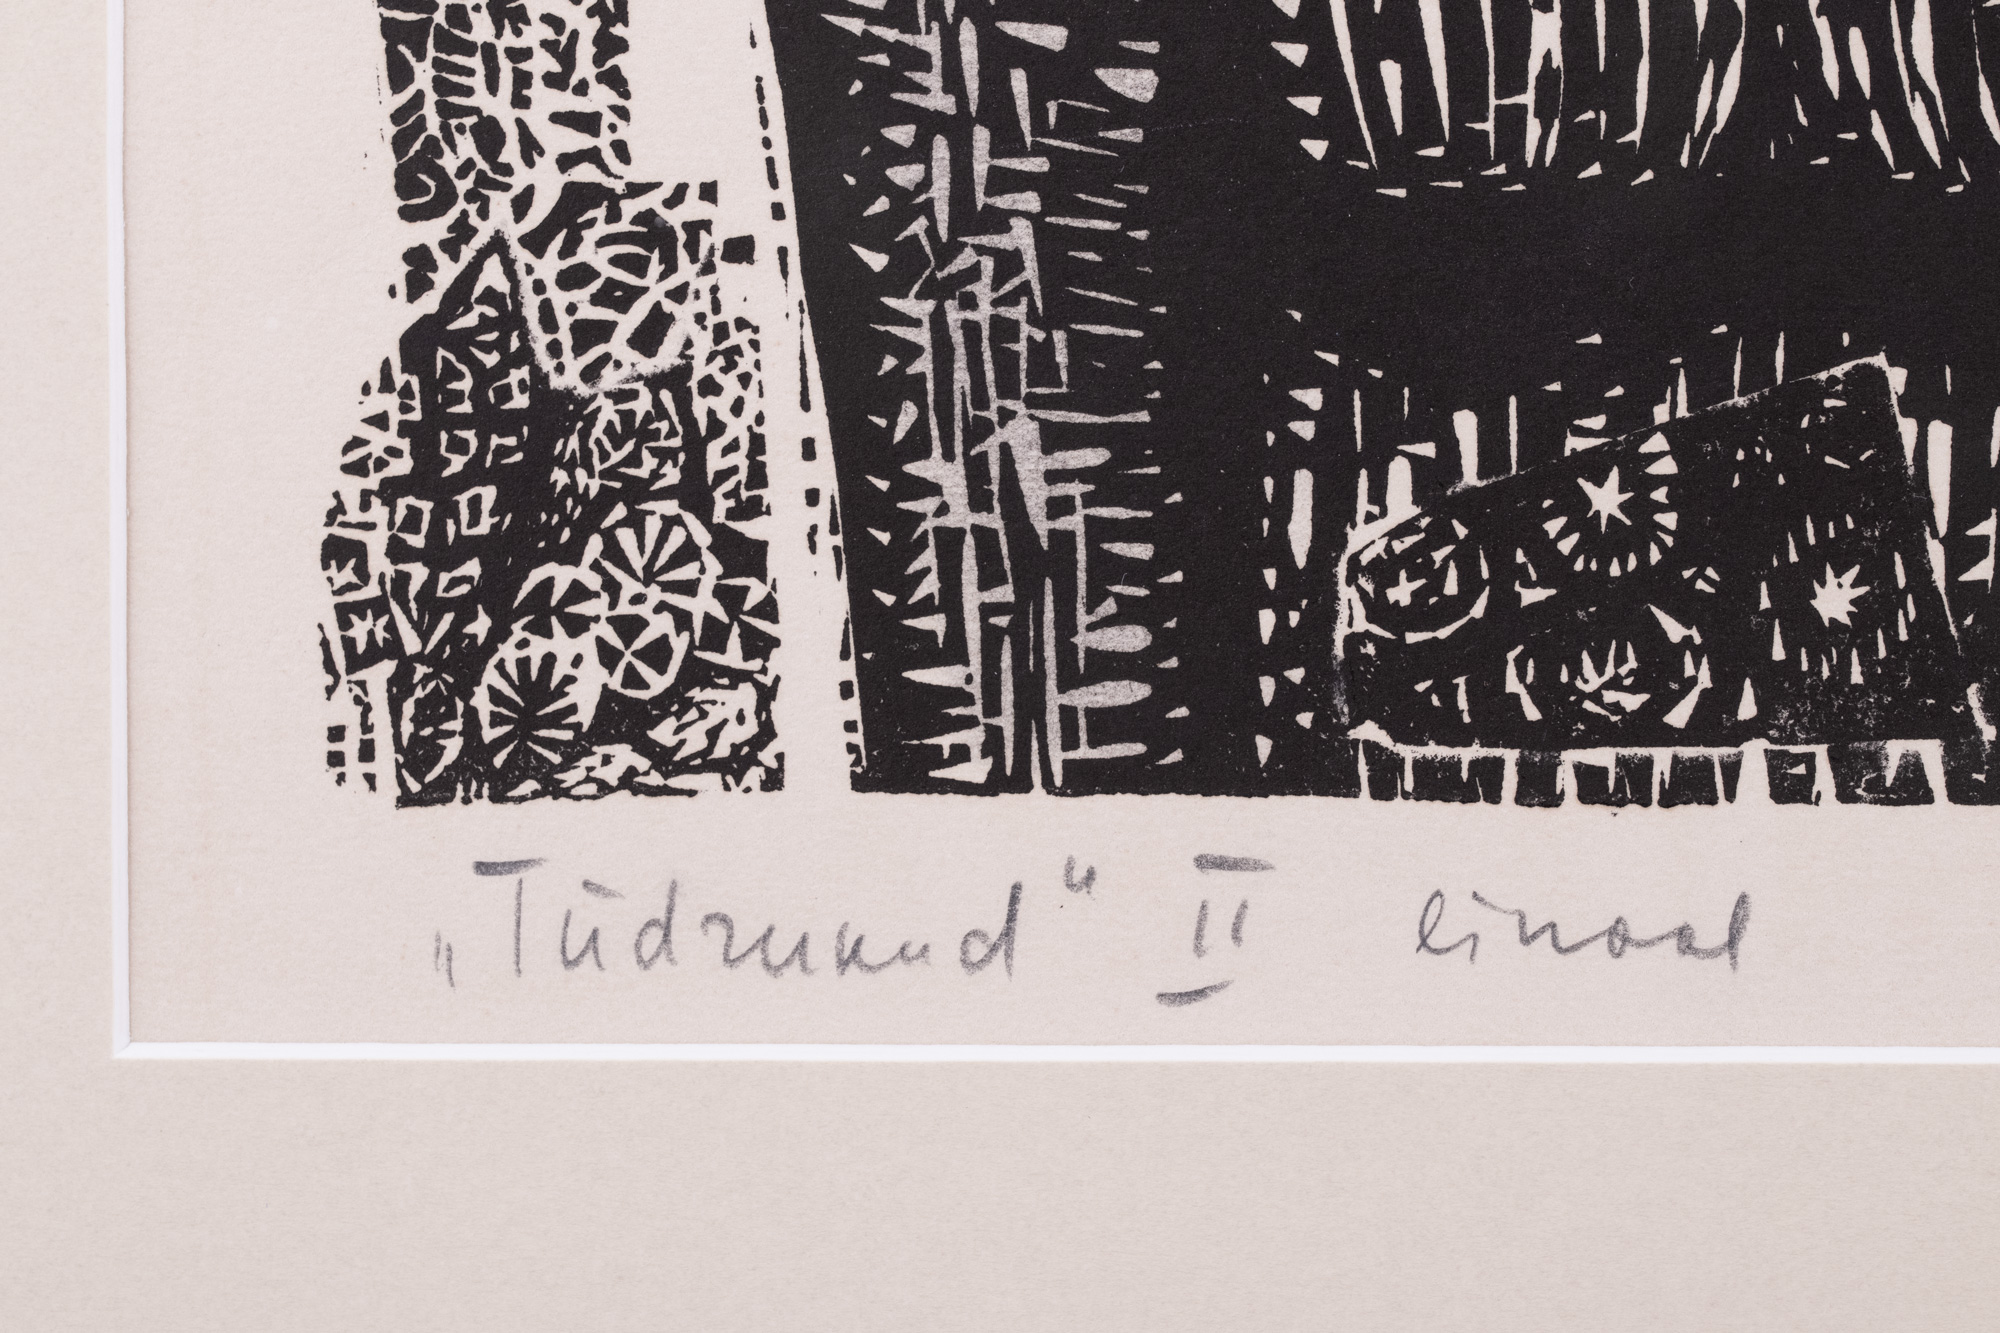 „Tüdrukud" II linool